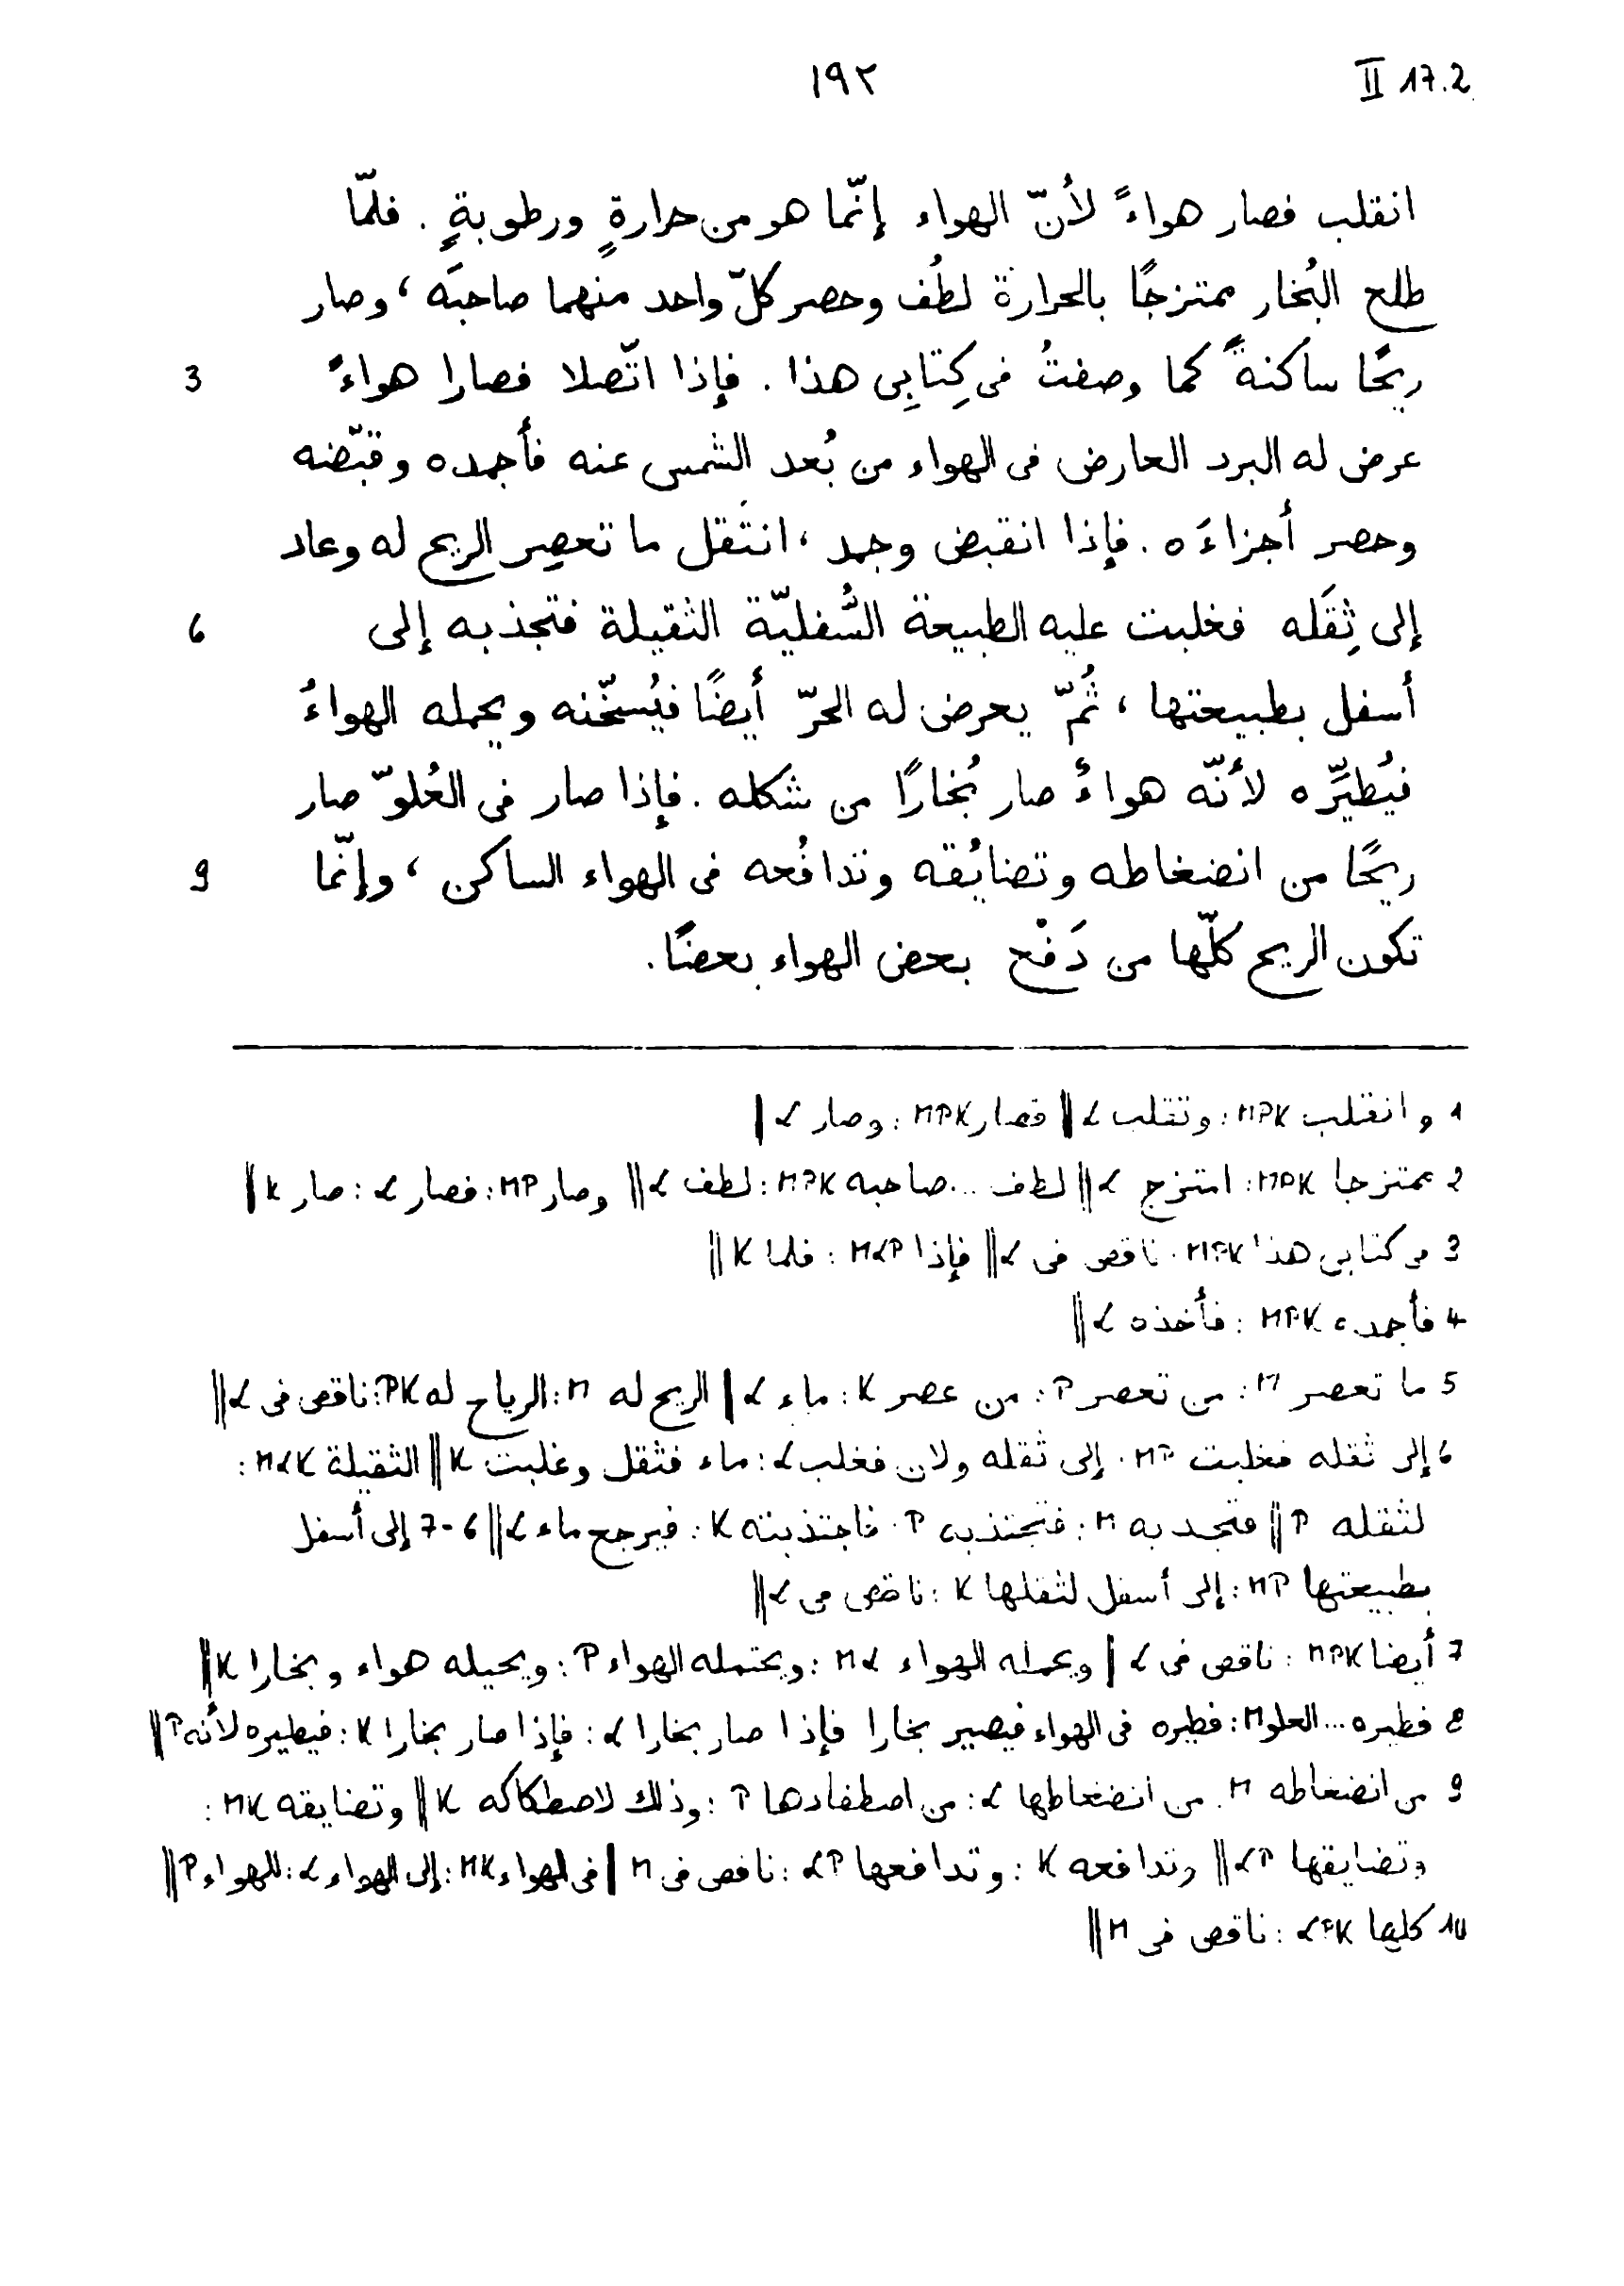 ١٩٢ II 17.2
انقلب فصار هواءً لأنّ الهواء إنّما هو من حرارةٍ ورطوبةٍ . فلمّا
طلع البُخار ممتزجًا بالحرارة لطُف وحصر كلّ واحد منهما صاحبَه ، وصار
ريحًا ساكنةً كما وصفتُ فى كِتابِى هذا . فإذا اتّصلا فصارا هواءً 3
عرض له البرد العارض فى الهواء من بُعد الشمس عنه فأجمده وقبّضه
وحصر أجزاءَه . فإذا انقبض وجمد ، انتَقل ما تعصِر الريح له وعاد
إلى ثِقَله فغلبت عليه الطبيعة السُّفليّة الثقيلة فتجذبه إلى 6
أسفل بطبيعتها ، ثُمّ يعرض له الحرّ أيضًا فيُسخّنه ويحمله الهواءُ
فيُطيِّره لأنّه هواءُ صار بُخارًا من شكله . فإذا صار فى العُلوّ صار
ريحًا من انضغاطه وتضايُقه وتدافُعه فى الهواء الساكن ، وإنّما 9
تكون الريح كلّها من دَفْع بعض الهواء بعضًا .
1 وانقلب MPK : وتقلب L || فصار MPK : وصار L |
2 ممتزجا MPK : امتزج L || لطف ... صاحبه MPK : لطف L || وصار MP : فصار L : صار K ||
3 فى كتابى هذا MPK : ناقص فى L || فإذا MLP : فلما K ||
4 فأجمده MPK : فأخذه L ||
5 ما تعصر M : من تعصر P : من عصر K : ماء L | الريح له M : الرياح له PK : ناقص فى L ||
6 إلى ثقله فغلبت MP : إلى ثقله ولان فغلب L : ماء فثقل وغلبت K || الثقيلة MLK :
لثقله P || فتجذبه M : فتجتذبه P : فاجتذبته K : فيرجع ماء L || 6-7 إلى أسفل
بطبيعتها MP : إلى أسفل لثقلها K : ناقص فى L ||
7 أيضا MPK : ناقص فى L | ويحمله الهواء ML : ويحتمله الهواء P : ويحيله هواء وبخارا K ||
8 فطيره ... العلو M : فطيره فى الهواء فيصير بخارا فإذا صار بخارا L : فإذا صار بخارا K : فيطيره لأنه P ||
9 من انضغاطه M : من انضغاطها L : من اصطفادها P : وذلك لاصطكاكه K || وتضايقه MK :
وتضايقها LP || وتدافعه K : وتدافعها LP : ناقص فى M | فى الهواء MK : إلى الهواء L : للهواء P ||
10 كلها LPK : ناقص فى M ||